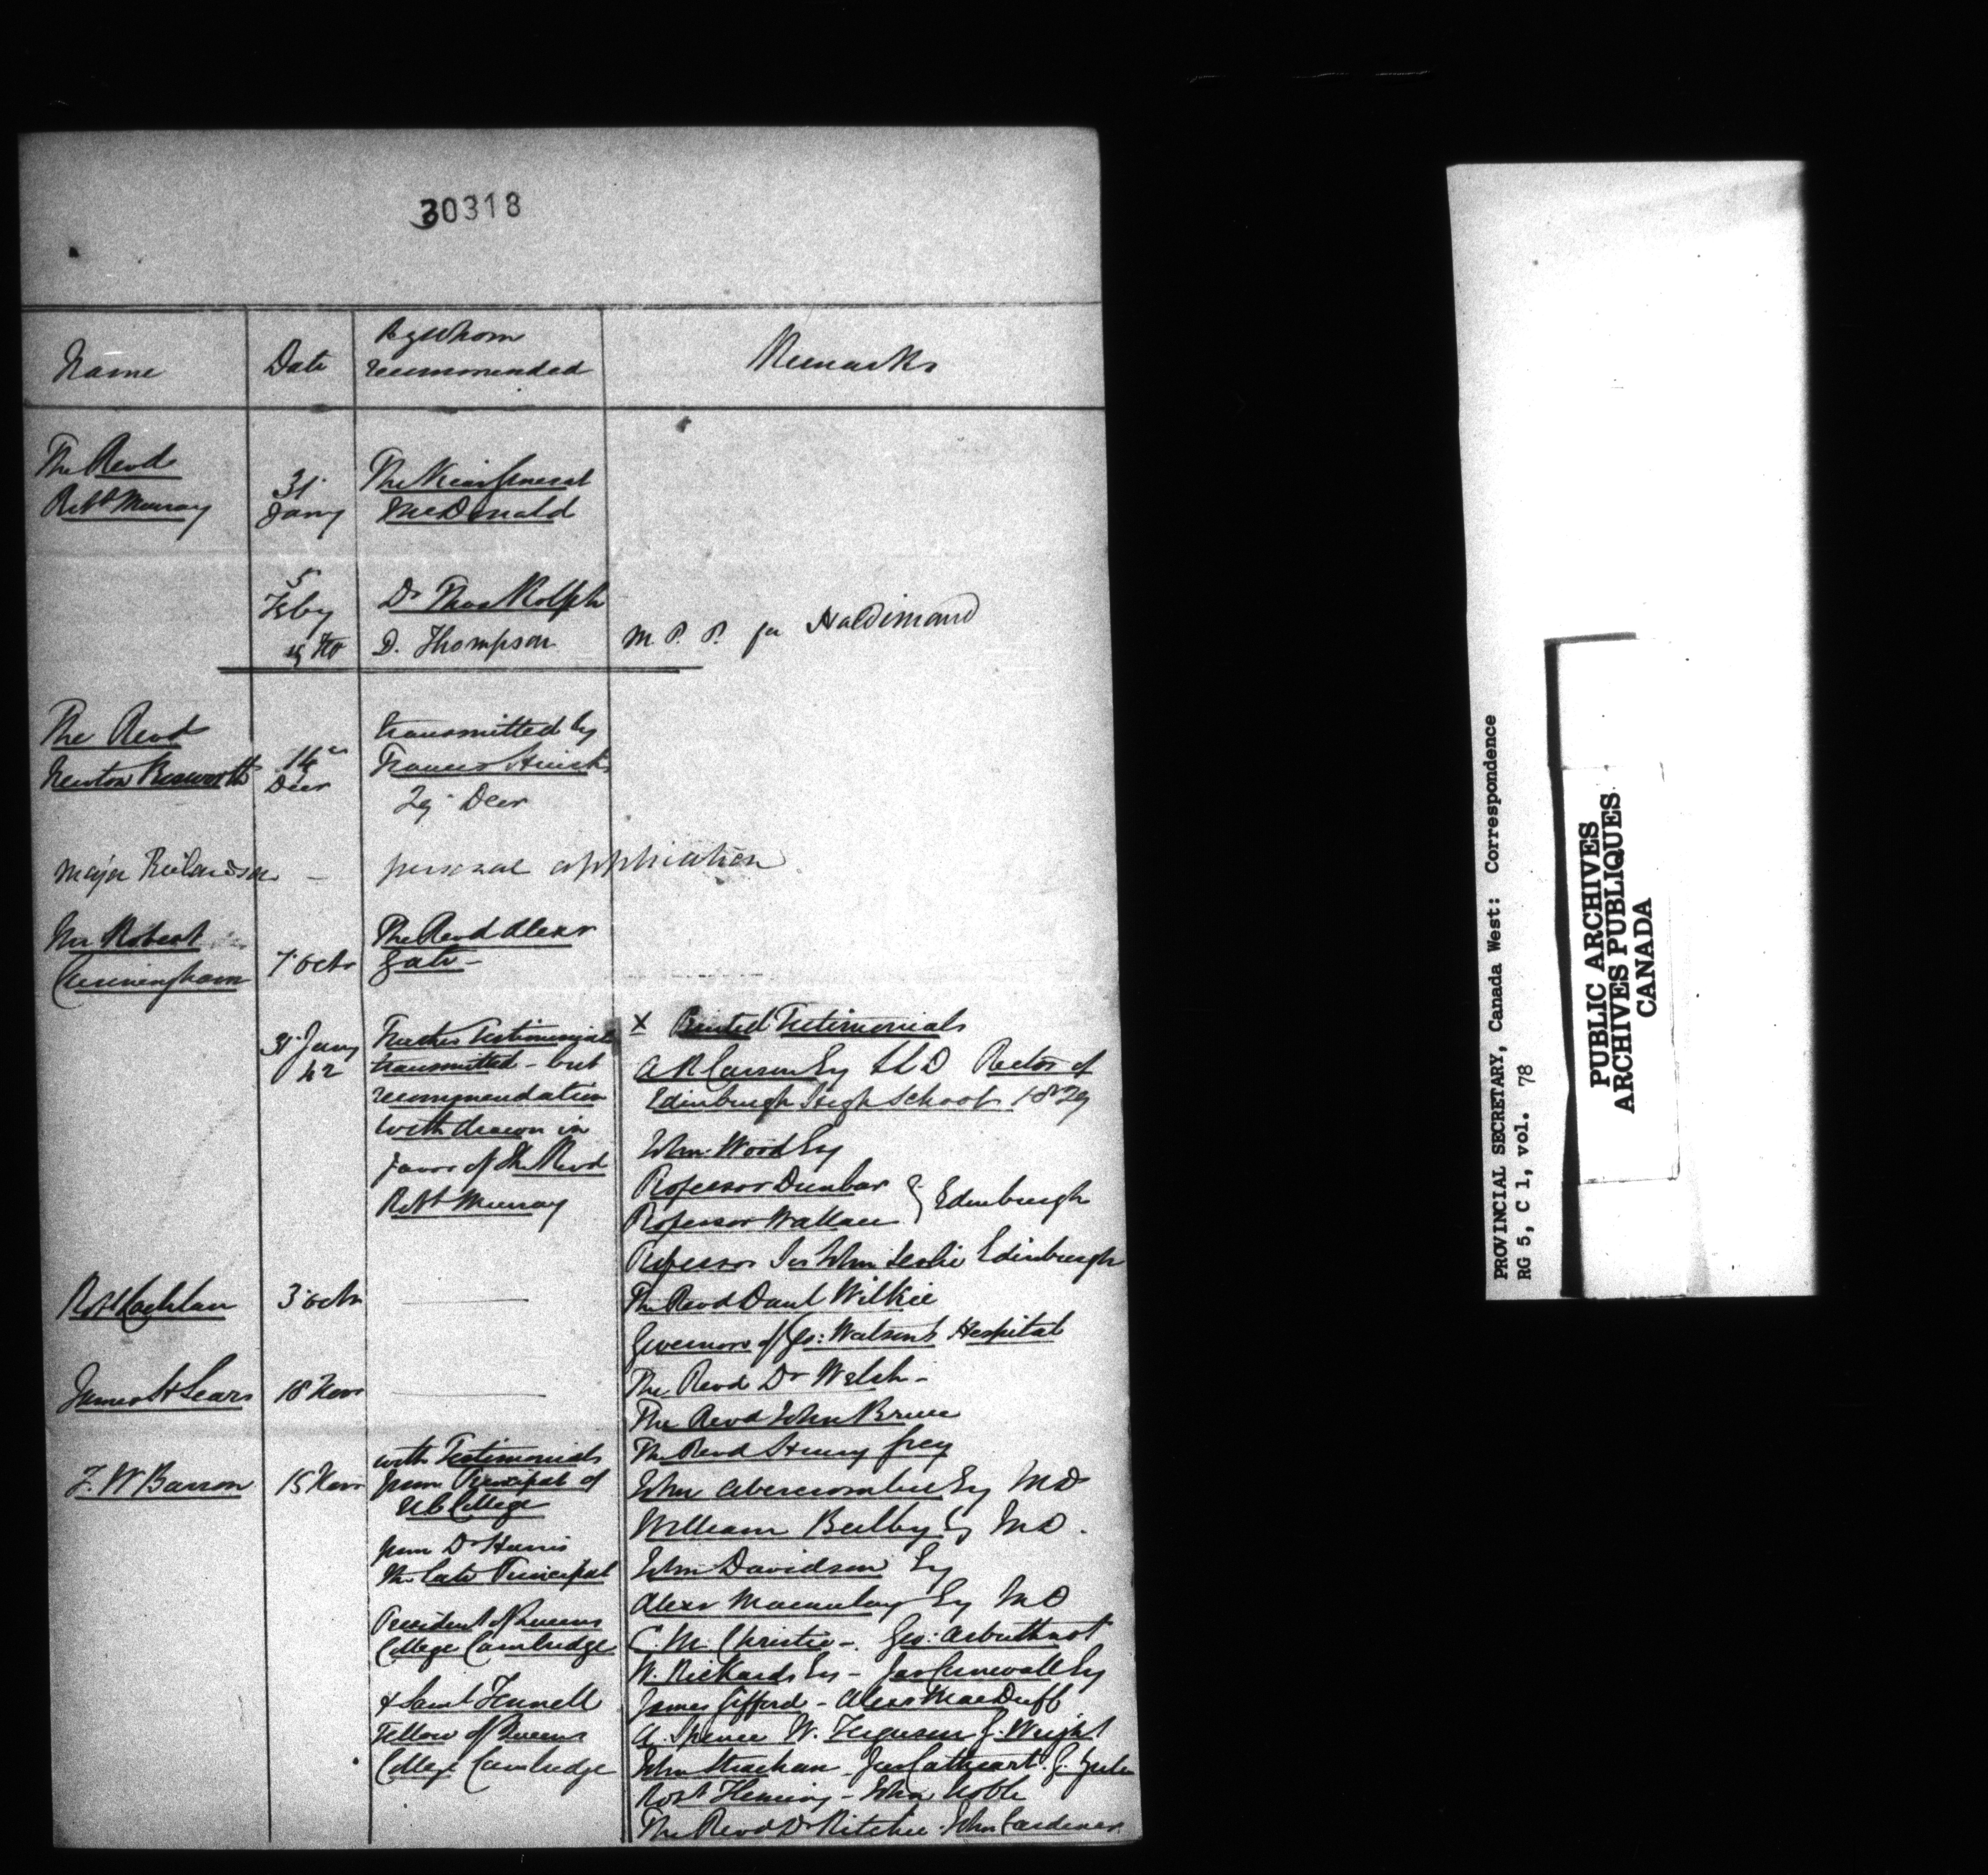 30318
Name
Date
By Whom
recommended
Remarks
The Revd
Robt Murray
31
Jany
The Vicar General
McDonald
5
Feby
Dr Thos Rolph
D. Thompson
M. P. P. for Haldimand
The Revd
Newton Bosworth
14
Decr
transmitted by
Francis Hincks
29 Decr
Major Richardson
-
personal application
Mr Robert
Cunningham
7 Octr
The Revd Alexr
Gale -
31 Jany
42
Further Testimonials
transmitted - but
recommendation
withdrawn in
favor of The Revd
Robt Murray
x Printed Testimonials
A R Carson Esq LLD Rector of
Edinburgh High School 1829
John Wood Esq
Professor Dunbar } Edinburgh
Professor Wallace
Professor Sir John Leslie Edinburgh
The Revd Danl Wilkie
Governors of Geo: Watson's Hospital
The Revd Dr Welsh -
The Revd John Bruce
The Revd Henry Grey
John Abercrombie Esq MD
William Beilby Esq MD.
John Davidson Esq
Alexr Macaulay Esq MD
C. M. Christie -. Geo: Arbuthnot
W. Rickards Esq - Jas Cornwall Esq
James Gifford - Alexr MacDuff
A. Spence W. Ferguson G. Wright
John Strachan - Jas Cathcart. G.
Robt Fleming - John Noble
The Revd Dr Ritchie. John Gardener
Robt Lachlan
3 Octr
James H Sears
18 Novr
F. W Barron
15 Novr
with Testimonials
from Principal of
U C College
from Dr Harris
the late Principal
President of Queens
College Cambridge
& Saml Fennell
Fellow of Queens
College Cambridge
PROVINCIAL SECRETARY, Canada West: Correspondence
RG 5, C 1, vol. 78
PUBLIC ARCHIVES
ARCHIVES PUBLIQUES
CANADA